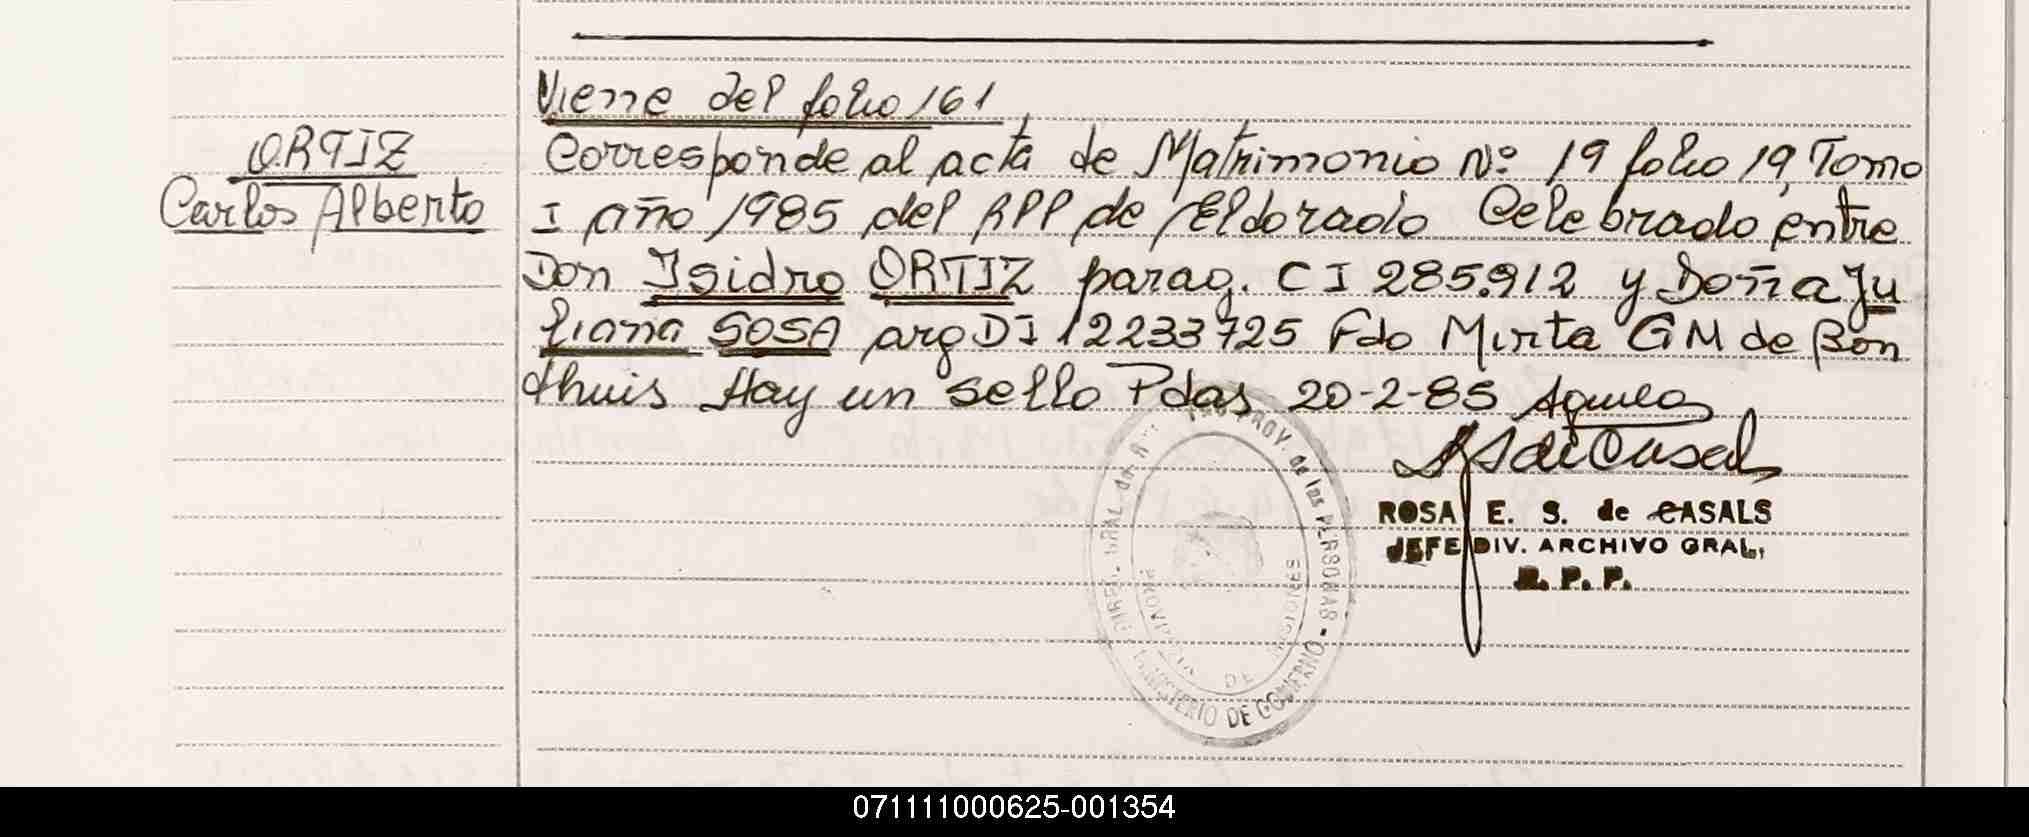 Viene del folio 161
ORTIZ
Carlos Alberto
Corresponde al acta de Matrimonio Nº 19 folio 19, Tomo
I año 1985 del RPP de Eldorado Celebrado entre
Don Isidro ORTIZ parag. CI 285.912 y Doña Ju
liana SOSA arg DI 12233725 Fdo Mirta GM de Bon
thuis Hay un sello Pdas 20-2-85
ROSA E. S. de CASALS
JEFE DIV. ARCHIVO GRAL.
R. P. P.
PROV. de las PERSONAS - MINISTERIO DE GOBIERNO
PROVINCIA DE MISIONES
071111000625-001354